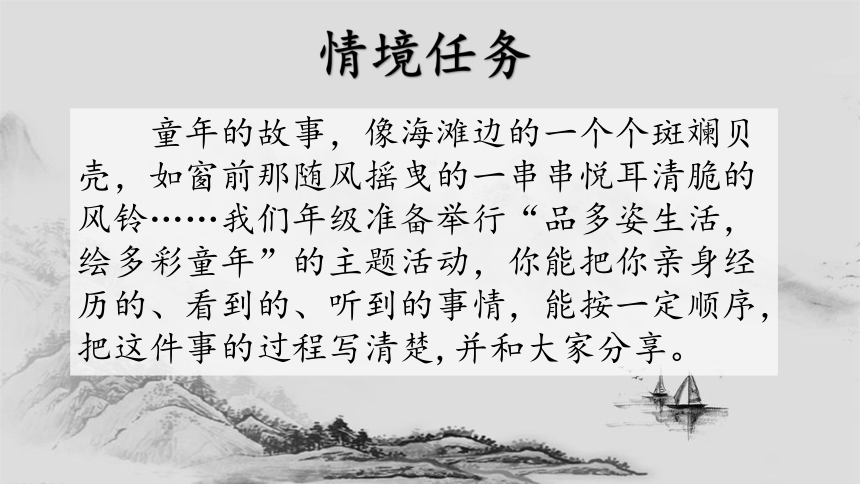 情境任务
童年的故事，像海滩边的一个个斑斓贝
壳，如窗前那随风摇曳的一串串悦耳清脆的
风铃……我们年级准备举行“品多姿生活，
绘多彩童年”的主题活动，你能把你亲身经
历的、看到的、听到的事情，能按一定顺序，
把这件事的过程写清楚,并和大家分享。